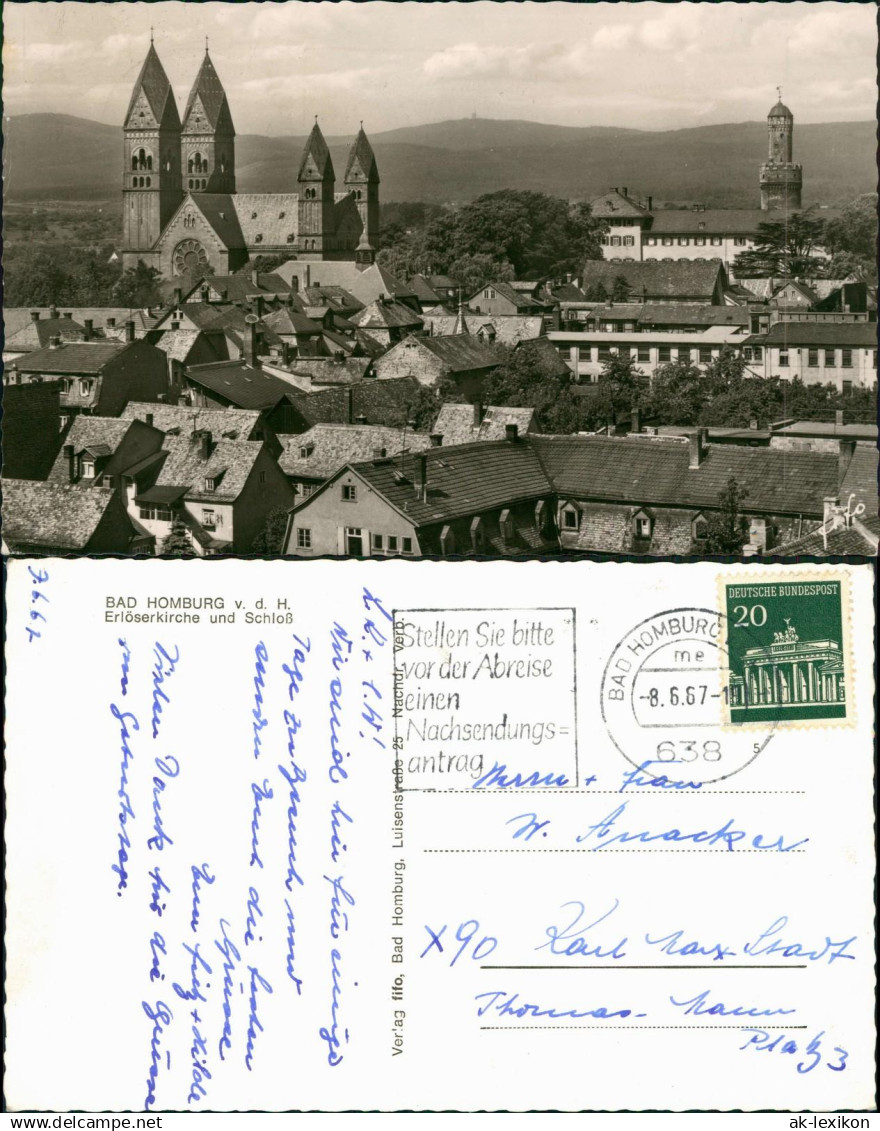 fifo
7.6.67
BAD HOMBURG v. d. H.
Erlöserkirche und Schloß
L. L. + l. W.!
Wir sind hier für einige
Tage zu Besuch und
senden Euch die besten
Grüsse
Eure Fritz + Hilde
Vielen Dank für die Grüsse
zum Geburtstage.
Verlag fifo, Bad Homburg, Luisenstraße 25 Nachdr. verb.
Stellen Sie bitte
vor der Abreise
einen
Nachsendungs=
antrag
BAD HOMBURG
me
-8.6.67-1
638
5
DEUTSCHE BUNDESPOST
20
Herrn + Frau
W. Anacker
X90 Karl Marx-Stadt
Thomas-Mann
Platz 3
ak-lexikon
ak-lexikon.com